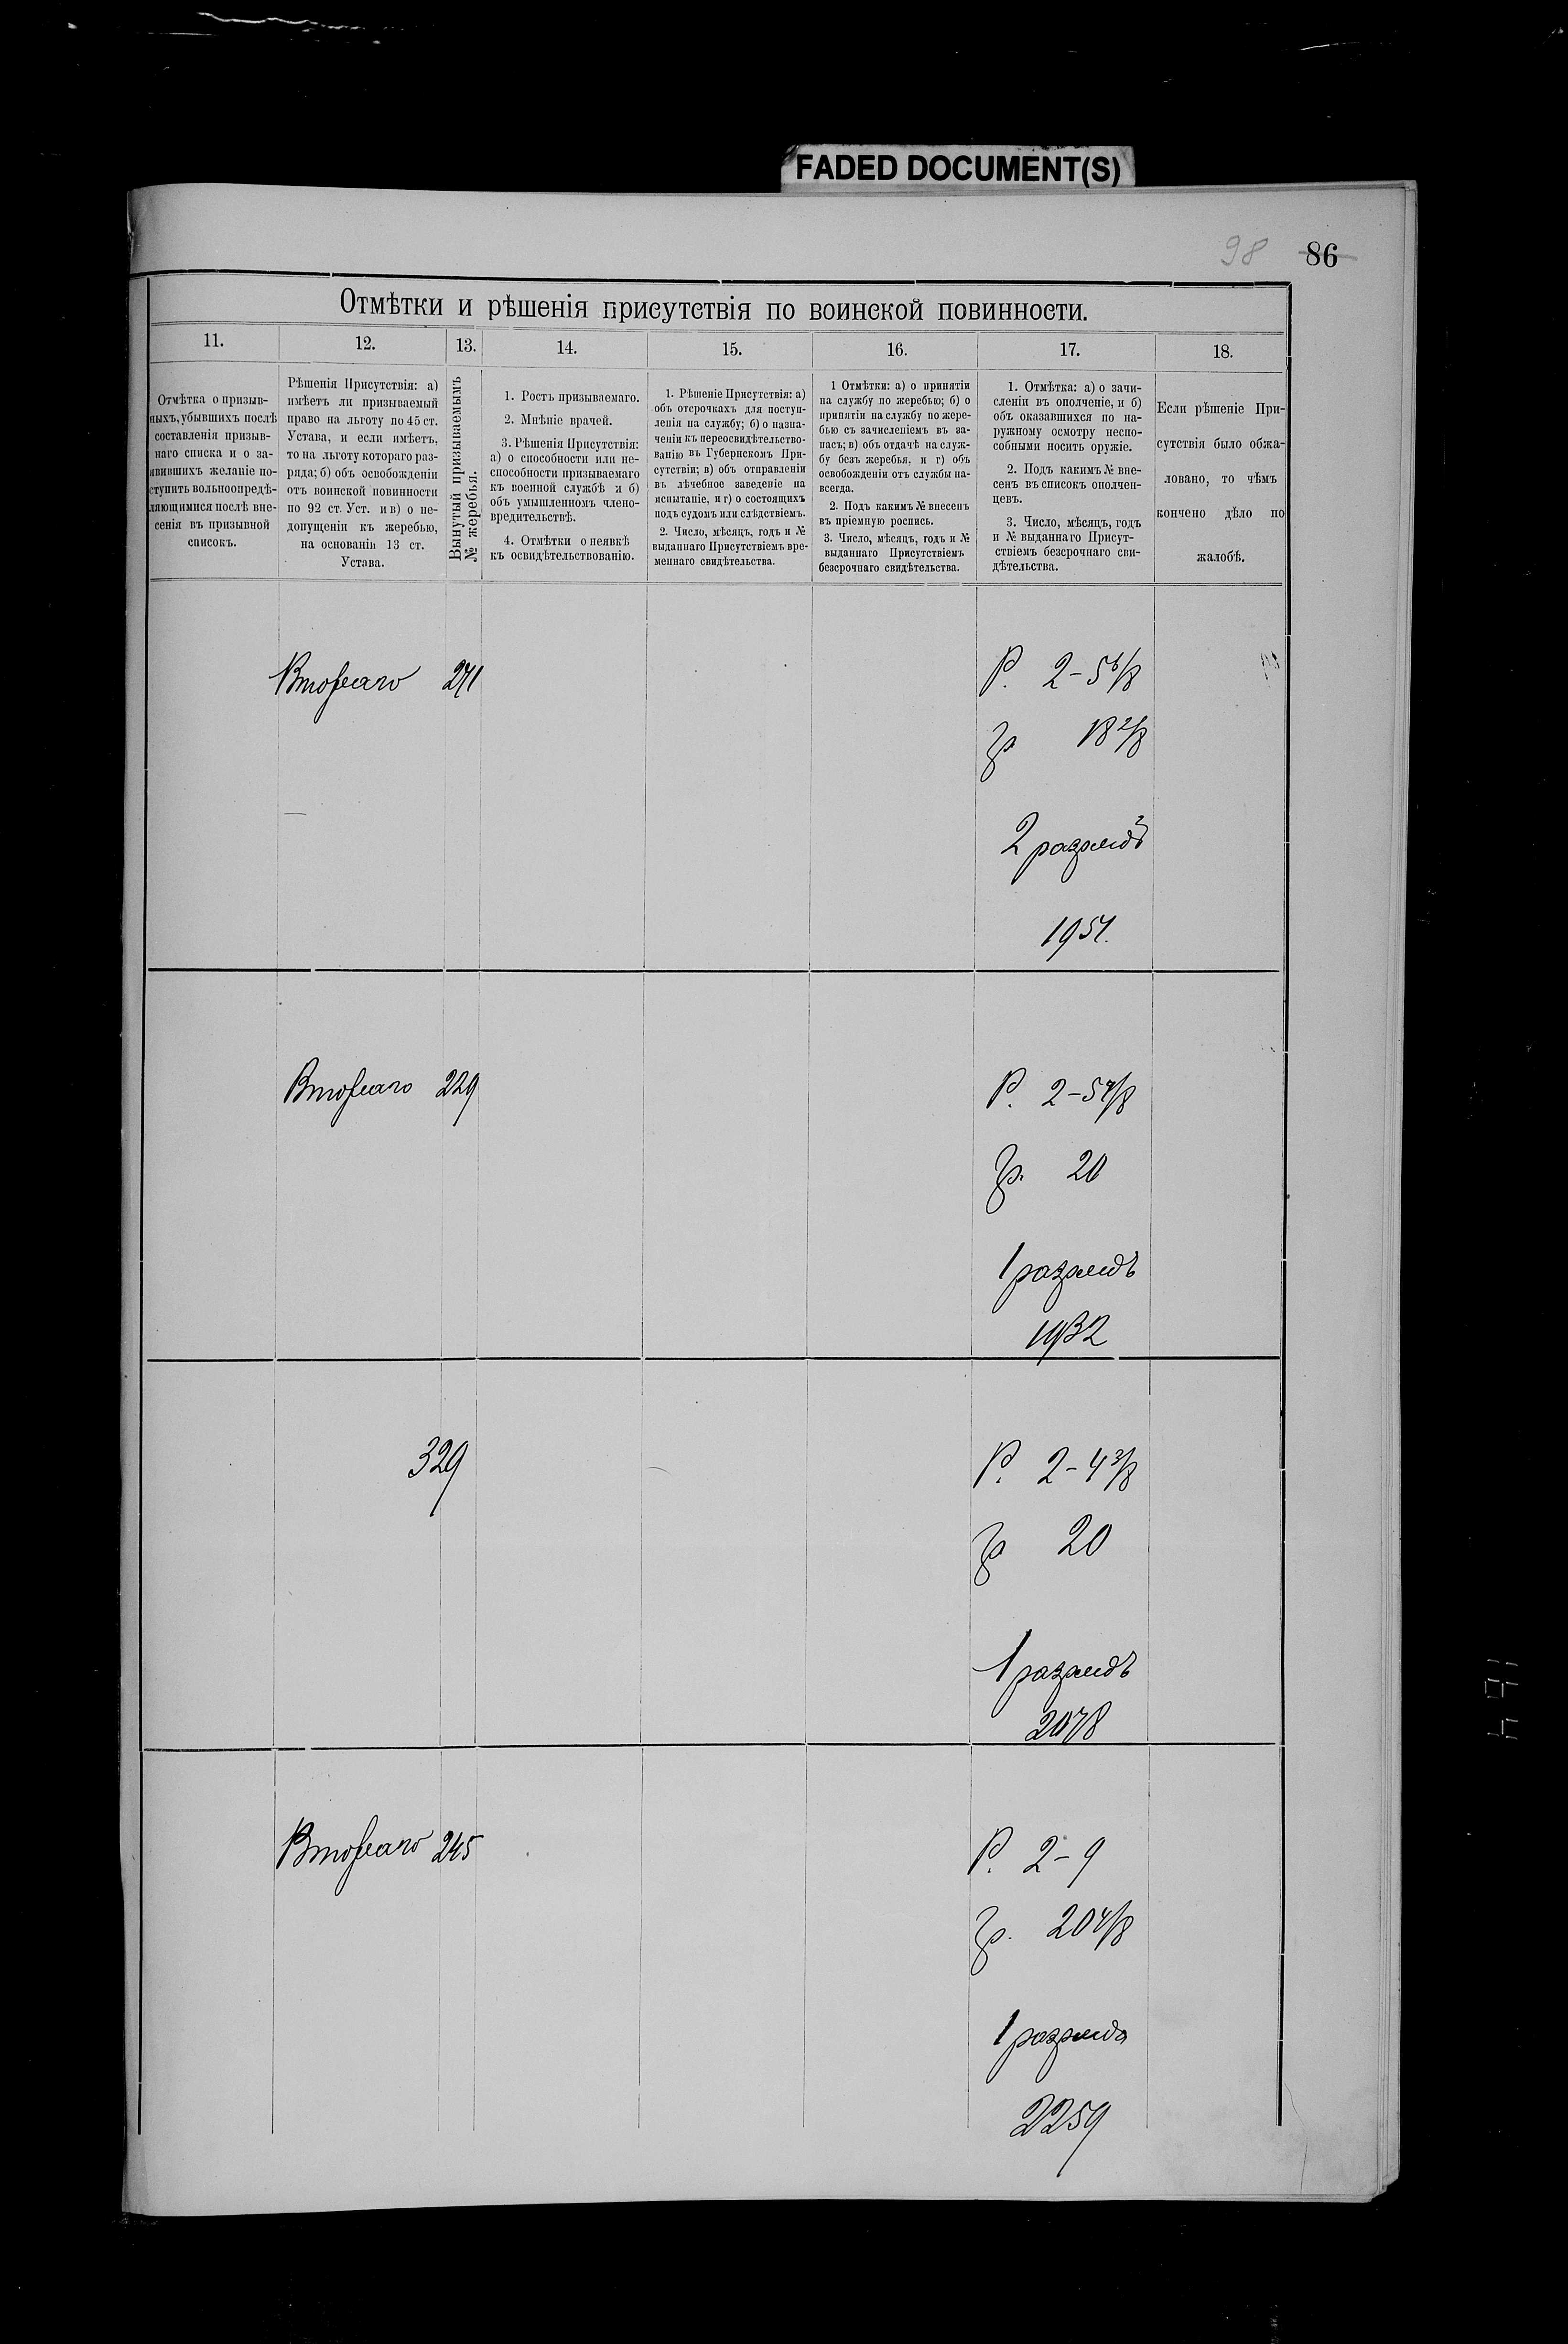 FADED DOCUMENT(S)
98 86
Отмѣтки и рѣшенія присутствія по воинской повинности.
11. 12. 13. 14. 15. 16. 17. 18.
Отмѣтка о призыв-
ныхъ, убывшихъ послѣ
составленія призыв-
наго списка и о за-
явившихъ желаніе по-
ступить вольноопредѣ-
ляющимися послѣ вне-
сенія въ призывной
списокъ.
Рѣшенія Присутствія: а)
имѣетъ ли призываемый
право на льготу по 45 ст.
Устава, и если имѣетъ,
то на льготу котораго раз-
ряда; б) объ освобожденіи
отъ воинской повинности
по 92 ст. Уст. и в) о не-
допущеніи къ жеребью,
на основаніи 13 ст.
Устава.
Вынутый призываемымъ
№ жеребья.
1. Ростъ призываемаго.
2. Мнѣніе врачей.
3. Рѣшенія Присутствія:
а) о способности или не-
способности призываемаго
къ военной службѣ и б)
объ умышленномъ члено-
вредительствѣ.
4. Отмѣтки о неявкѣ
къ освидѣтельствованію.
1. Рѣшеніе Присутствія: а)
объ отсрочкахъ для поступ-
ленія на службу; б) о назна-
ченіи къ переосвидѣтельство-
ванію въ Губернскомъ При-
сутствіи; в) объ отправленіи
въ лѣчебное заведеніе на
испытаніе, и г) о состоящихъ
подъ судомъ или слѣдствіемъ.
2. Число, мѣсяцъ, годъ и №
выданнаго Присутствіемъ вре-
меннаго свидѣтельства.
1 Отмѣтки: а) о принятіи
на службу по жеребью; б) о
принятіи на службу по жере-
бью съ зачисленіемъ въ за-
пасъ; в) объ отдачѣ на служ-
бу безъ жеребья, и г) объ
освобожденіи отъ службы на-
всегда.
2. Подъ какимъ № внесенъ
въ пріемную роспись.
3. Число, мѣсяцъ, годъ и №
выданнаго Присутствіемъ
безсрочнаго свидѣтельства.
1. Отмѣтка: а) о зачи-
сленіи въ ополченіе, и б)
объ оказавшихся по на-
ружному осмотру неспо-
собными носить оружіе.
2. Подъ какимъ № вне-
сенъ въ списокъ ополчен-
цевъ.
3. Число, мѣсяцъ, годъ
и № выданнаго Присут-
ствіемъ безсрочнаго сви-
дѣтельства.
Если рѣшеніе При-
сутствія было обжа-
ловано, то чѣмъ
кончено дѣло по
жалобѣ.
Втораго 271 Р. 2-5 6/8
гр 18 2/8
2 разрядъ
1951.
Втораго 229 Р. 2-5 4/8
гр. 20
1 разрядъ
1932
329 Р. 2-4 3/8
гр 20
1 разрядъ
2078
Втораго 245 Р. 2-9
гр. 20 4/8
1 разряда
2259